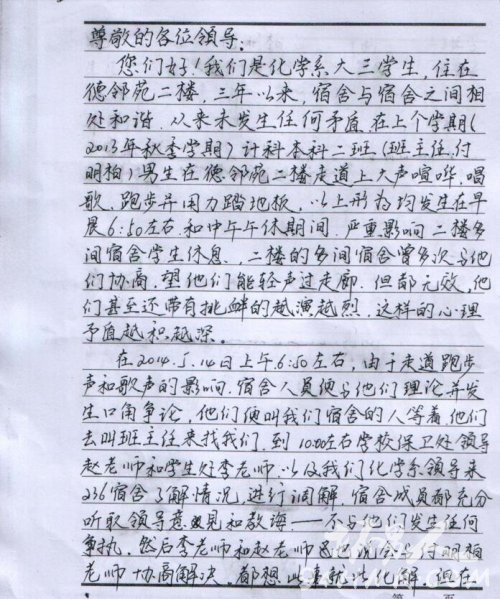 尊敬的各位领导:
您们好!我们是化学系大三学生,住在
德邻苑二楼,三年以来,宿舍与宿舍之间相
处和谐.从来未发生任何矛盾.在上个学期(
2013年秋季学期)计科本科二班(班主任:付
明柏)男生在德邻苑二楼走道上大声喧哗,唱
歌,跑步并用力踏地板,以上形为均发生在早
晨6:50左右.和中午午休期间.严重影响二楼多
间宿舍学生休息.,二楼的多间宿舍曾多次与他
们协商,望他们能轻声过走廊.但都无效,他
们甚至还带有挑衅的越演越烈.这样的心理
矛盾越积越深。
在2014.5.14日上午6:50左右,由于走道跑步
声和歌声的影响.宿舍人员便与他们理论并发
生口角争论,他们便叫我们宿舍的人等着他们
去叫班主任来找我们.到10:00左右学校保卫处领导
赵老师和学生处李老师.以及我们化学系领导来
236宿舍了解情况,进行调解,宿舍成员都充分
听取领导意见和教诲——不与他们发生任何
争执.然后李老师和赵老师也说会与付明柏
老师协商解决.都想此事就此化解.但在
第 页